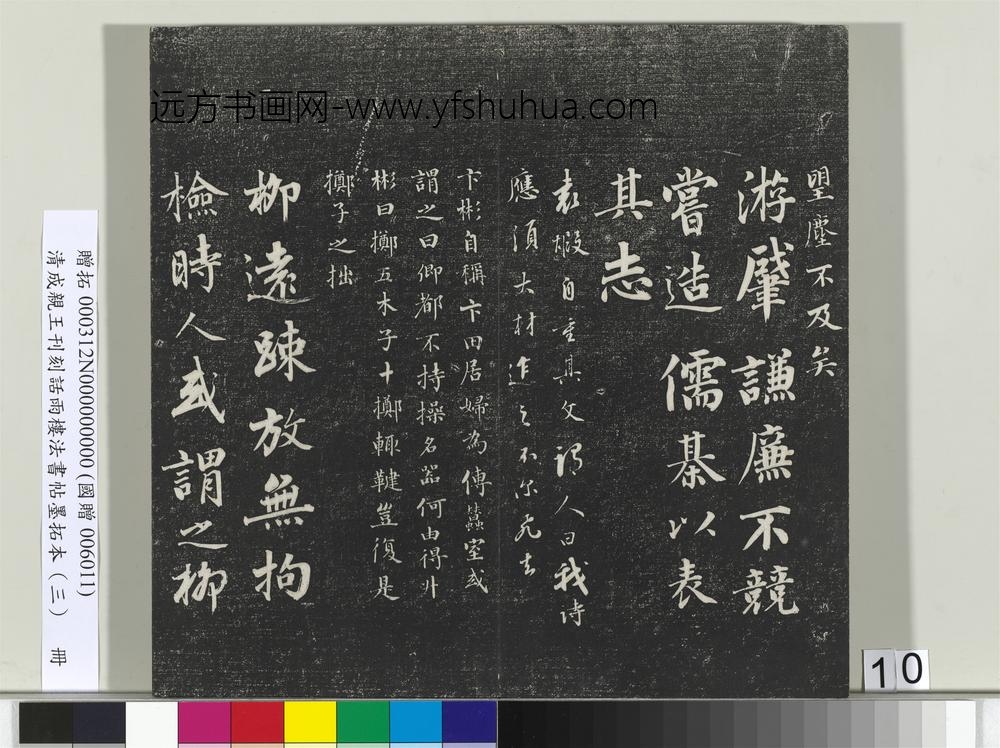 远方书画网-www.yfshuhua.com
望塵不及矣
游肇謙廉不競
嘗造儒棊以表
其志
袁嘏自重其文謂人曰我詩
應須大材迮之不尔飛去
卞彬自稱卞田居婦為傅蠶室或
謂之曰卿都不持操名器何由得升
彬曰擲五木子十擲輒鞬豈復是
擲子之拙
柳遠踈放無拘
檢時人或謂之柳
贈拓 000312N000000000 (國贈 006011)
清成親王刊刻話雨樓法書帖墨拓本（三） 冊
10